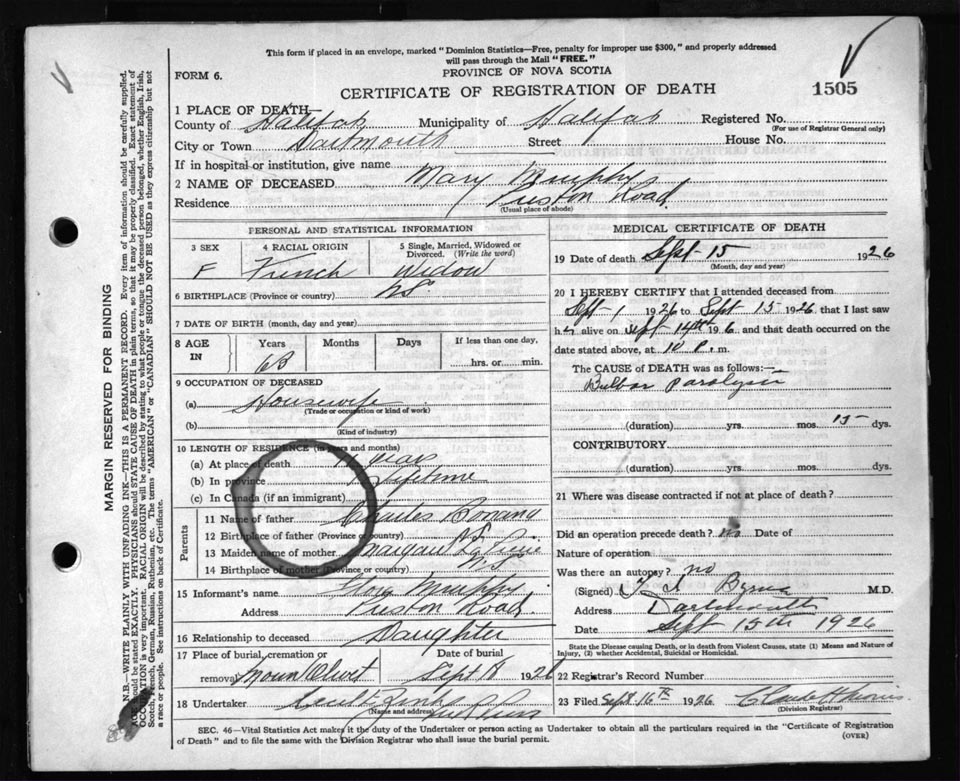 This form if placed in an envelope, marked "Dominion Statistics—Free, penalty for improper use $300," and properly addressed
will pass through the Mail "FREE."
FORM 6.
PROVINCE OF NOVA SCOTIA
CERTIFICATE OF REGISTRATION OF DEATH
1505
1 PLACE OF DEATH—
County of Halifax Municipality of Halifax Registered No.
(For use of Registrar General only)
City or Town Dartmouth Street House No.
If in hospital or institution, give name
2 NAME OF DECEASED Mary Murphy
Residence Preston Road
(Usual place of abode)
PERSONAL AND STATISTICAL INFORMATION
3 SEX 4 RACIAL ORIGIN 5 Single, Married, Widowed or Divorced. (Write the word)
F French Widow
6 BIRTHPLACE (Province or country) N.S.
7 DATE OF BIRTH (month, day and year)
8 AGE IN Years Months Days If less than one day,
63 hrs. or min.
9 OCCUPATION OF DECEASED
(a) Housewife
(Trade or occupation or kind of work)
(b)
(Kind of industry)
10 LENGTH OF RESIDENCE (in years and months)
(a) At place of death year
(b) In province Lifetime
(c) In Canada (if an immigrant)
Parents
11 Name of father Charles
12 Birthplace of father (Province or country) N.S.
13 Maiden name of mother
14 Birthplace of mother (Province or country) N.S
15 Informant's name Murphy
Address Preston Road.
16 Relationship to deceased Daughter
17 Place of burial, cremation or removal Mount Olivet Date of burial Sept 18 1926
18 Undertaker
(Name and address)
MEDICAL CERTIFICATE OF DEATH
19 Date of death Sept 15 1926
(Month, day and year)
20 I HEREBY CERTIFY that I attended deceased from
Sept 1 1926 to Sept 15 1926, that I last saw
her alive on Sept 14th 1926, and that death occurred on
date stated above, at 10 P. m.
The CAUSE of DEATH was as follows:—
Bulbar Paralysis
(duration) yrs. mos. 15 dys.
CONTRIBUTORY
(duration) yrs. mos. dys.
21 Where was disease contracted if not at place of death?
Did an operation precede death? No Date of
Nature of operation
Was there an autopsy? no
(Signed) Byrne M.D.
Address Dartmouth
Date Sept 15th 1926
State the Disease causing Death, or in death from Violent Causes, state (1) Means and Nature of
Injury, (2) whether Accidental, Suicidal or Homicidal.
22 Registrar's Record Number
23 Filed Sept 16th 1926
(Division Registrar)
SEC. 46—Vital Statistics Act makes it the duty of the Undertaker or person acting as Undertaker to obtain all the particulars required in the "Certificate of Registration
of Death" and to file the same with the Division Registrar who shall issue the burial permit.
(OVER)
MARGIN RESERVED FOR BINDING
N.B.—WRITE PLAINLY WITH UNFADING INK—THIS IS A PERMANENT RECORD. Every item of information should be carefully supplied.
AGE should be stated EXACTLY. PHYSICIANS should STATE CAUSE OF DEATH in plain terms, so that it may be properly classified. Exact statement of
OCCUPATION is very important. RACIAL ORIGIN will be described by stating to what people or tongue the deceased person belonged, whether English, Irish,
Scotch, French, German, Russian, Ruthenian, etc. The terms "AMERICAN" or "CANADIAN" SHOULD NOT BE USED as they express citizenship but not
a race or people. See instructions on back of Certificate.